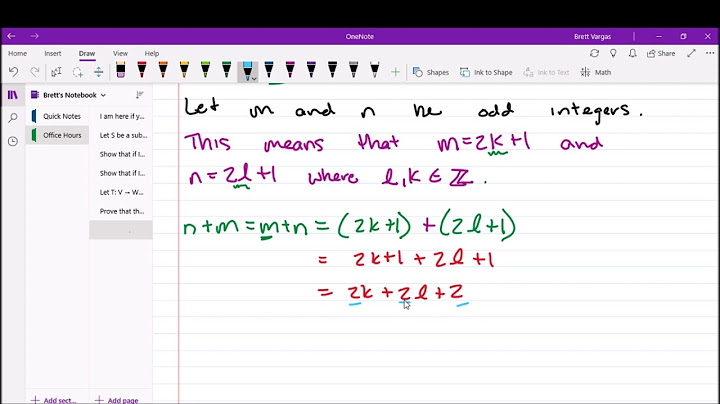 OneNote
Brett Vargas
Home Insert Draw View Help
Share
Shapes Ink to Shape Ink to Text Math
Brett's Notebook
Quick Notes
Office Hours
I am here if y...
Let S be a sub...
Show that if I...
Show that if I...
Let T: V → W...
Prove that th...
+ Add sect...
+ Add page
Let m and n be odd integers.
This means that m=2k+1 and
n=2l+1 where l,k ∈ ℤ.
n+m=m+n=(2k+1)+(2l+1)
= 2k+1+2l+1
= 2k+2l+2